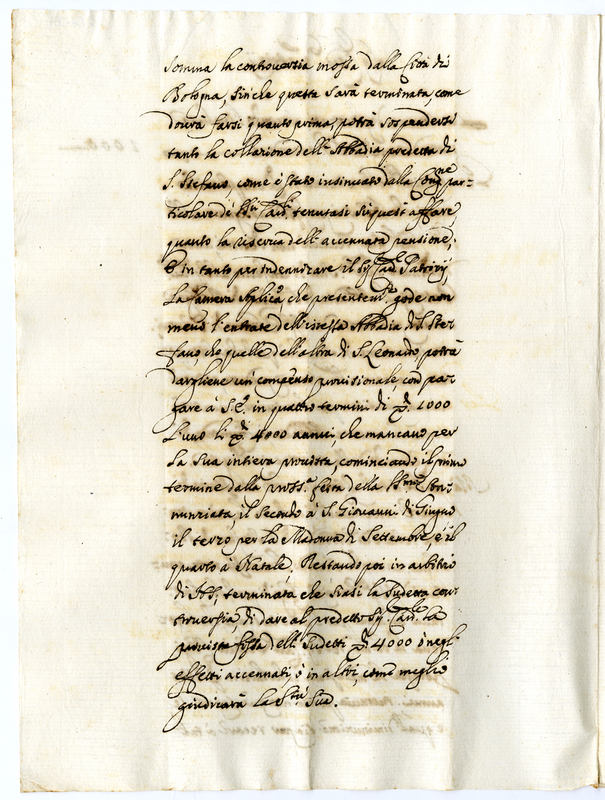 Somma la controversia mossa dalla Città di
Bologna, sinche questa sarà terminata, come
dovrà farsi quanto prima, potrà sospendersi
tanto la collazione dell' Abbadia predetta di
S. Stefano, come è stato insinuato dalla Cong.ne par-
ticolare di tenutasi sù quest' affare,
quanto la riserva dell' accennata pensione;
E in tanto per indennizare il Sig.r Card. Patrizij,
La Camera Aplica, che presentem.te gode non
meno l'entrate dell' istessa Abbadia di S. Stef-
fano, che quelle dell' altra di S. Leonardo, potrà
dargliene un' compenso provisionale, con pa-
gare à S. E. in quattro termini di 1000
l'uno li 4000 annui, che mancano per
La sua intiera provista, cominciando il primo
termine dalla pross.a festa della SS.ma An-
nunziata, il secondo à S. Giovanni di Giugno
il terzo per la Madonna di Settembre, e il
quarto à Natale; Restando poi in arbitrio
di N.S., terminata che siasi la sudetta con-
troversia, di dare al predetto Sig.r Card. la
provista fissa delli sudetti 4000 ò negl'
effetti accennati, ò in altri, come meglio
giudicarà la S.tà Sua.